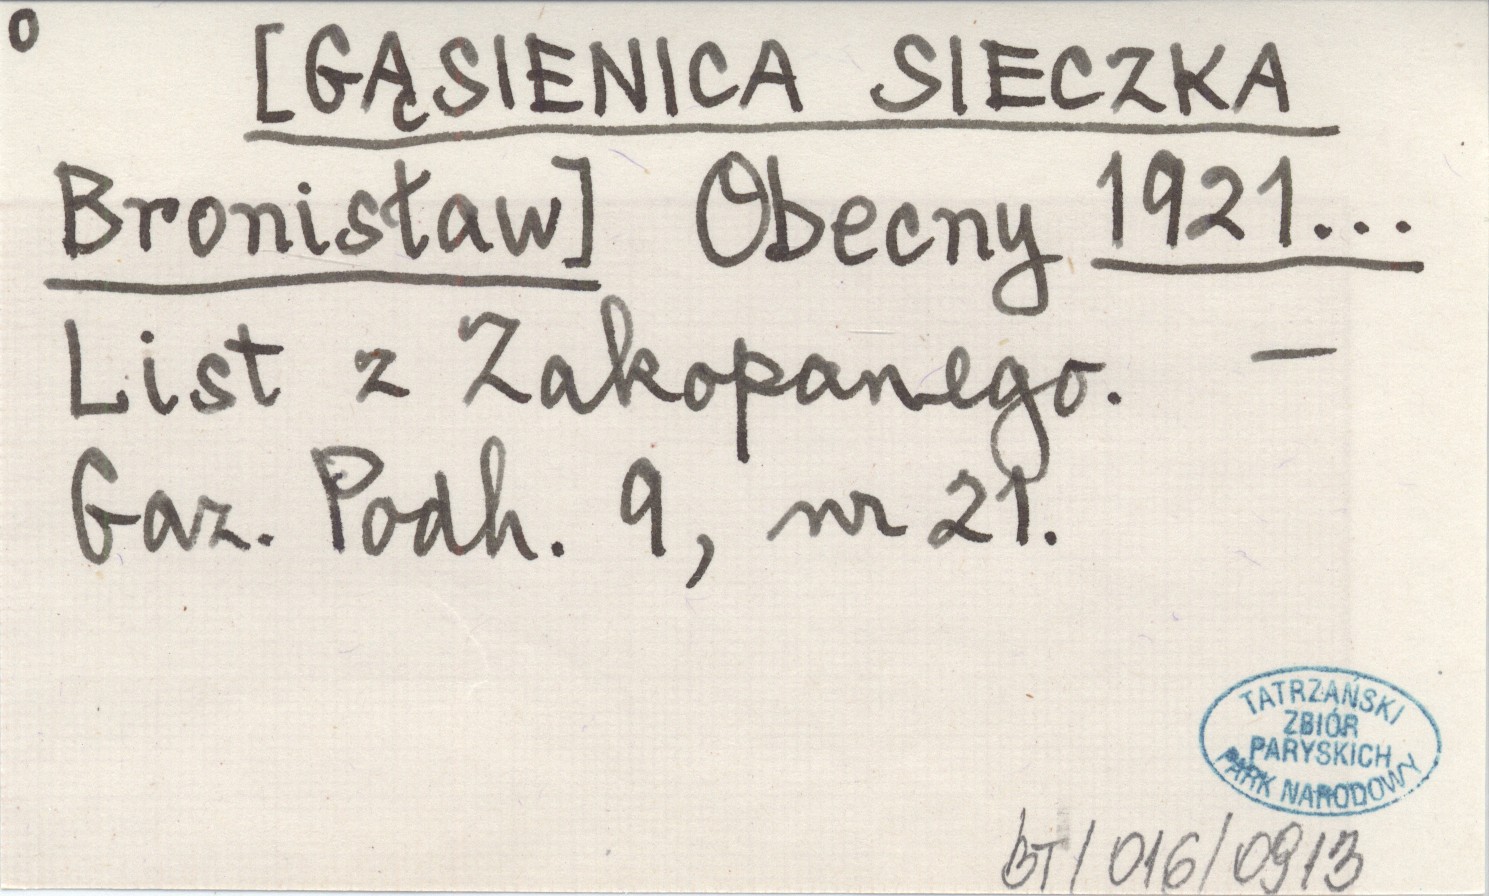 o
[GĄSIENICA SIECZKA
Bronisław] Obecny 1921...
List z Zakopanego. —
Gaz. Podh. 9, nr 21.
TATRZAŃSKI
ZBIÓR
PARYSKICH
PARK NARODOWY
BT/016/0913